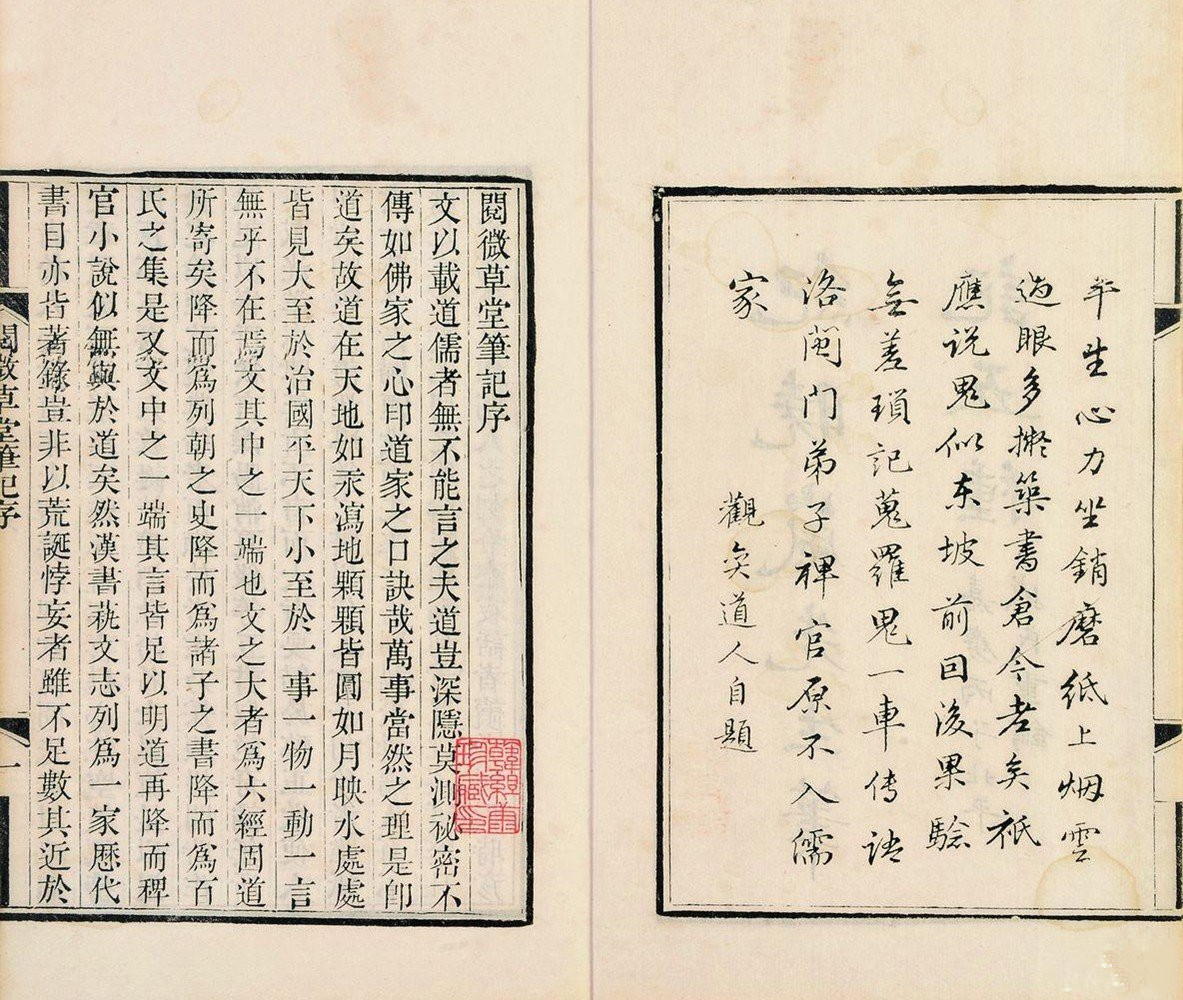 平生心力坐銷磨紙上烟雲
過眼多擬築書倉今老矣祇
應说鬼似东坡前因後果驗
無差瑣記蒐羅鬼一車传語
洛閩门弟子稗官原不入儒
家
觀奕道人自題
閱微草堂筆記序
文以載道儒者無不能言之夫道豈深隱莫測秘密不
傳如佛家之心印道家之口訣哉萬事當然之理是卽
道矣故道在天地如汞瀉地顆顆皆圓如月映水處處
皆見大至於治國平天下小至於一事一物一動一言
無乎不在焉文其中之一端也文之大者爲六經固道
所寄矣降而爲列朝之史降而爲諸子之書降而爲百
氏之集是又文中之一端其言皆足以明道再降而稗
官小說似無與於道矣然漢書蓺文志列爲一家歷代
書目亦皆著錄豈非以荒誕悖妄者雖不足數其近於
閱微草堂筆記序
一